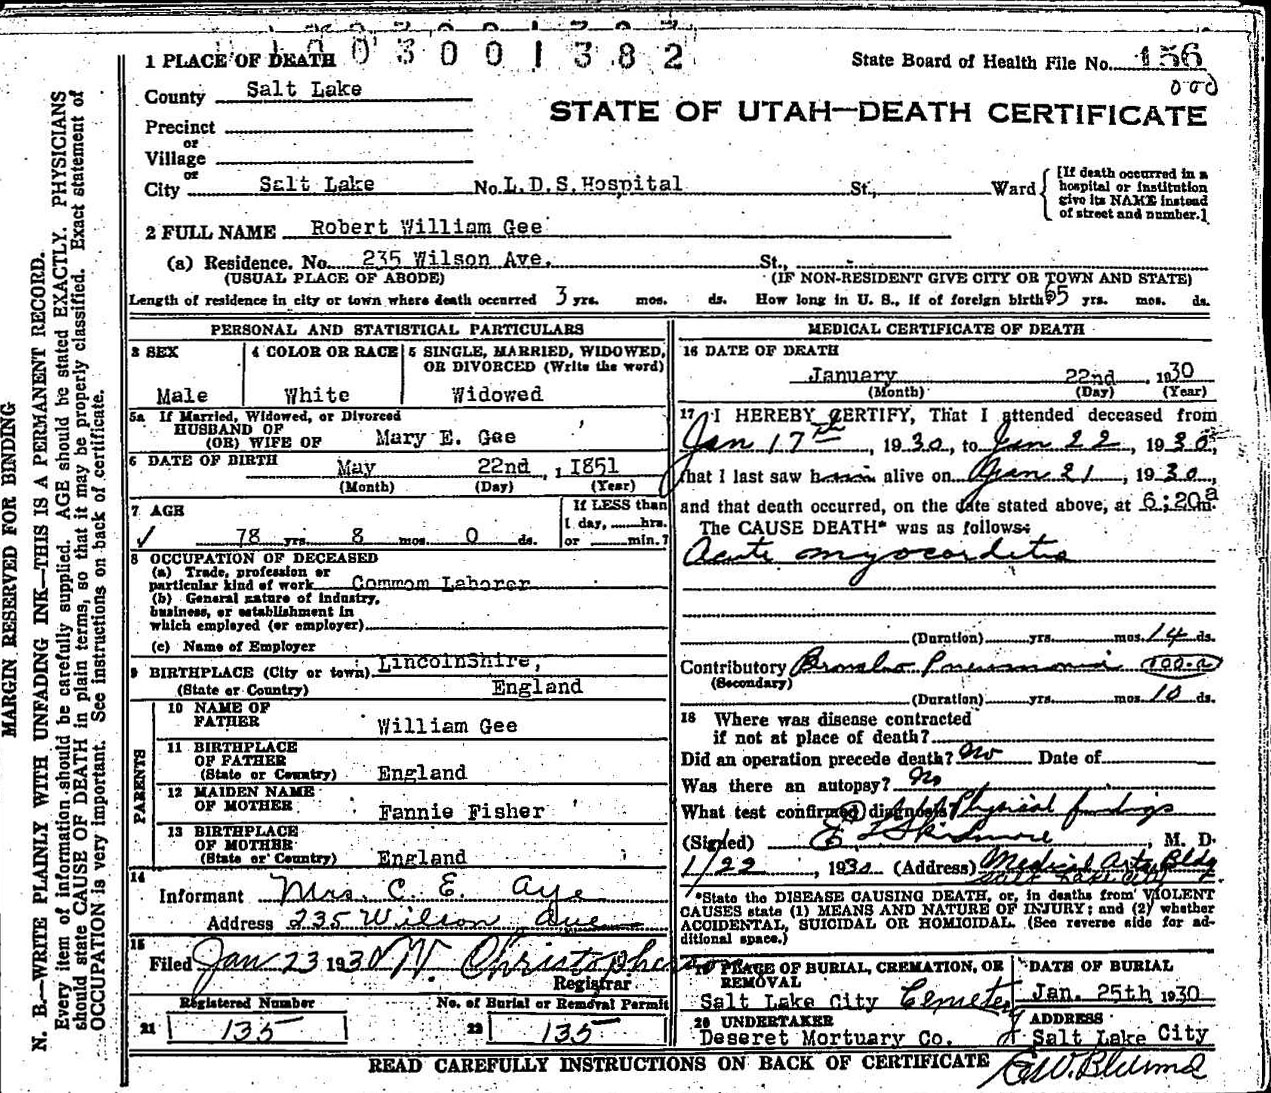 03001382
1 PLACE OF DEATH
State Board of Health File No. 156
County Salt Lake
STATE OF UTAH—DEATH CERTIFICATE
Precinct
or
Village
or
City Salt Lake No. L.D.S. Hospital St., Ward
[If death occurred in a
hospital or institution
give its NAME instead
of street and number.]
2 FULL NAME Robert William Gee
(a) Residence. No. 235 Wilson Ave. St.,
(USUAL PLACE OF ABODE) (IF NON-RESIDENT GIVE CITY OR TOWN AND STATE)
Length of residence in city or town where death occurred 3 yrs. mos. ds. How long in U. S., if of foreign birth 65 yrs. mos. ds.
PERSONAL AND STATISTICAL PARTICULARS
3 SEX
Male
4 COLOR OR RACE
White
5 SINGLE, MARRIED, WIDOWED,
OR DIVORCED (Write the word)
Widowed
5a If Married, Widowed, or Divorced
HUSBAND OF
(OR) WIFE OF Mary E. Gee
6 DATE OF BIRTH May 22nd, 1851
(Month) (Day) (Year)
7 AGE
78 yrs. 8 mos. 0 ds.
If LESS than
1 day, hrs.
or min.?
8 OCCUPATION OF DECEASED
(a) Trade, profession or
particular kind of work Commom Laborer
(b) General nature of industry,
business, or establishment in
which employed (or employer)
(c) Name of Employer
9 BIRTHPLACE (City or town) Lincolnshire,
(State or Country) England
PARENTS
10 NAME OF
FATHER William Gee
11 BIRTHPLACE
OF FATHER
(State or Country) England
12 MAIDEN NAME
OF MOTHER Fannie Fisher
13 BIRTHPLACE
OF MOTHER
(State or Country) England
14
Informant Mrs. C. E. Aye
Address 235 Wilson Ave
15
Filed Jan 23 1930 W. Christopherson
Registrar
Registered Number
21 135
No. of Burial or Removal Permit
22 135
MEDICAL CERTIFICATE OF DEATH
16 DATE OF DEATH
January 22nd, 1930
(Month) (Day) (Year)
17 I HEREBY CERTIFY, That I attended deceased from
Jan 17th, 1930, to Jan 22, 1930,
that I last saw him alive on Jan 21, 1930,
and that death occurred, on the date stated above, at 6:20a m.
The CAUSE DEATH* was as follows:
Acute myocarditis
(Duration) yrs. mos. 14 ds.
Contributory Broncho Pneumonia 100-a
(Secondary)
(Duration) yrs. mos. 10 ds.
18 Where was disease contracted
if not at place of death?
Did an operation precede death? No Date of
Was there an autopsy? No
What test confirmed diagnosis? Physical findings
(Signed) E. Skidmore, M. D.
1/22, 1930 (Address) Medical Arts Bldg
*State the DISEASE CAUSING DEATH, or, in deaths from VIOLENT
CAUSES state (1) MEANS AND NATURE OF INJURY; and (2) whether
ACCIDENTAL, SUICIDAL OR HOMICIDAL. (See reverse side for ad-
ditional space.)
19 PLACE OF BURIAL, CREMATION, OR
REMOVAL
Salt Lake City Cemetery
DATE OF BURIAL
Jan. 25th 1930
20 UNDERTAKER
Deseret Mortuary Co.
ADDRESS
Salt Lake City
READ CAREFULLY INSTRUCTIONS ON BACK OF CERTIFICATE
MARGIN RESERVED FOR BINDING
N. B.—WRITE PLAINLY WITH UNFADING INK—THIS IS A PERMANENT RECORD.
Every item of information should be carefully supplied. AGE should be stated EXACTLY. PHYSICIANS
should state CAUSE OF DEATH in plain terms, so that it may be properly classified. Exact statement of
OCCUPATION is very important. See instructions on back of certificate.